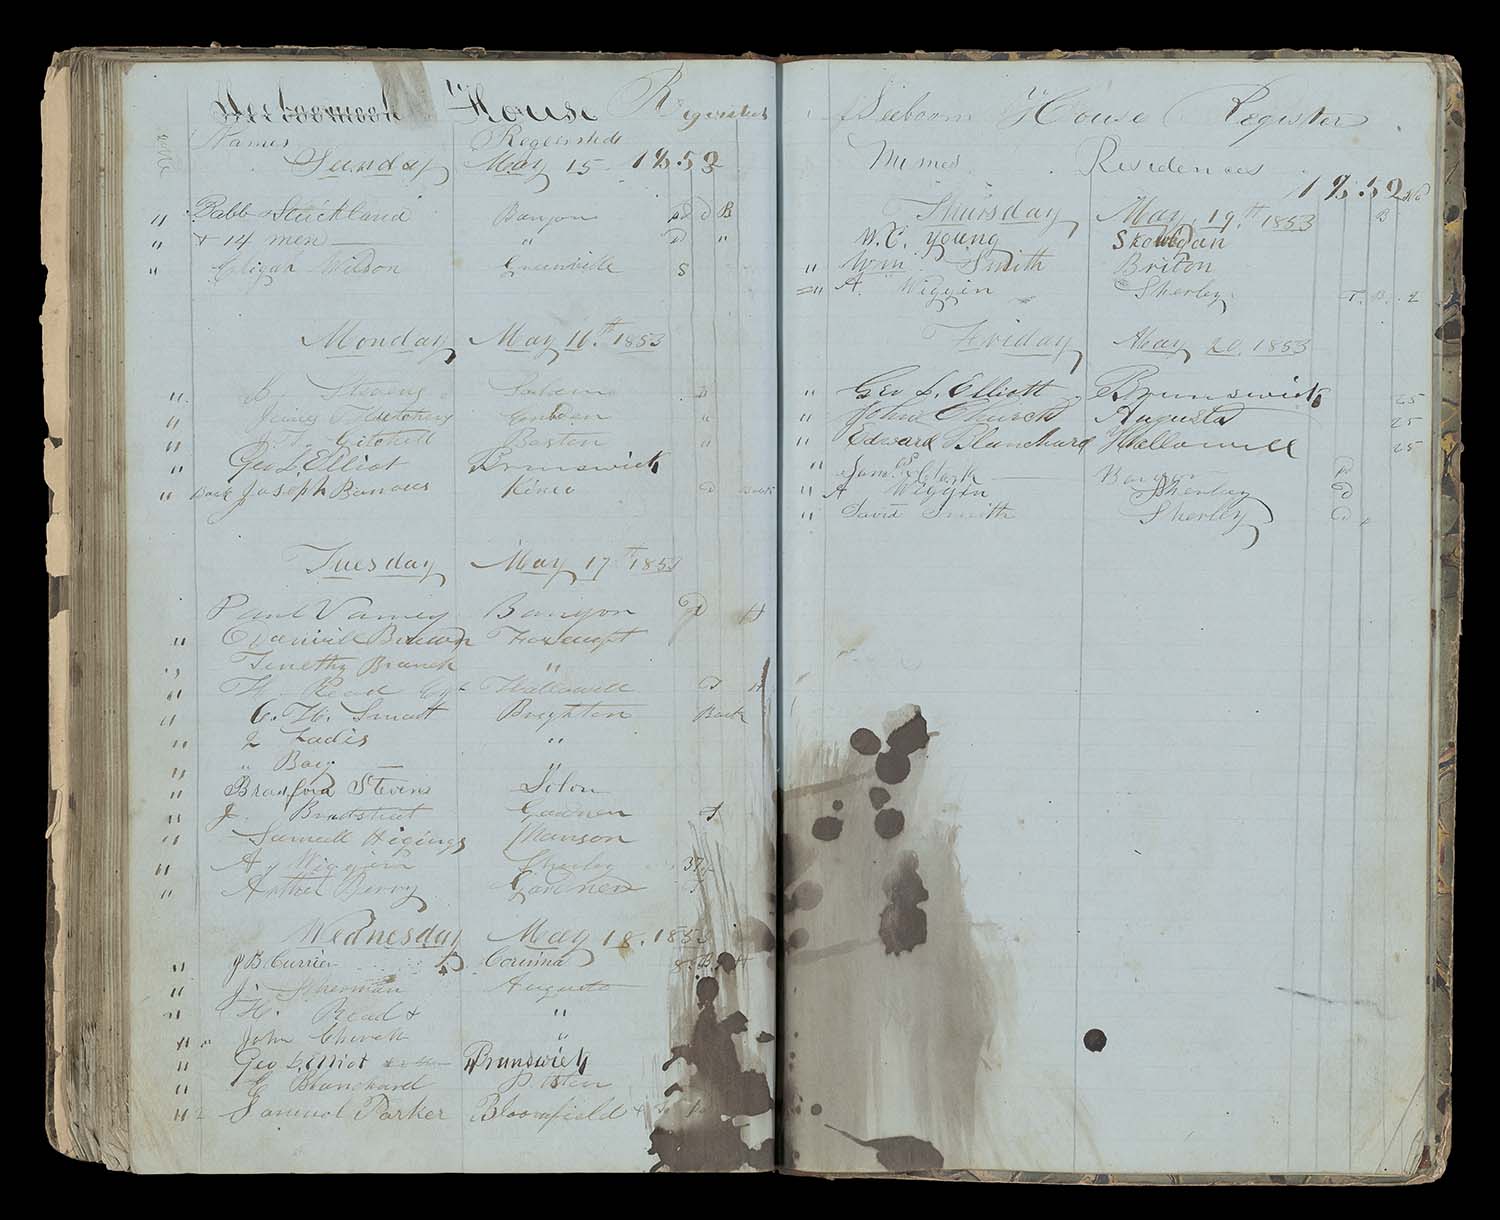 Seeboomook House Register
Names
Sunday May 15 1853
" Babb & Strickland Bangor D D B
" & 14 men " D "
" Eligah Wilson Greenville S
Monday May 16th 1853
" B. Stevens D
" James "
J. H. Gitchell Boston "
" Geo L Elliot Brunswick
" Back Joseph Kineo D Back
Tuesday May 17th 1853
Paul Varney Bangor H
" Brown
" Timothy Branch "
" H. Read Hallowell T H
" C. H. Smart Brighton Back
" 2 Ladis "
" " Boy "
" Bradford Stevens Solon
" J. Bradstreet T
" Samuell Higings Manson
" A Wiggin Sherley 37
" Arther Berry Gardiner T
Wednesday May 18. 1853
" J B Currier Corinna B H
" J. Sherman Augusta
" H. Read & "
" " John Church "
" Geo L. Elliot Brunswick
" E Blanchard Pitsten
" 2 Samuel Parker Bloomfield
Seeboom House Register
Names Residences
1853
Thursday May. 19.th 1853 B
W. C. Young Skowegan
" Wm Smith Briton
" A. Wiggin Sherley T. B. 2
Friday May 20. 1853
" Geo L. Elliott Brunswick 25
" John Church Augusta 25
" Edward Blanchard Hallowell 25
" Clark Bangor D
" A Wiggin Sherley D
" David Smith Sherley D